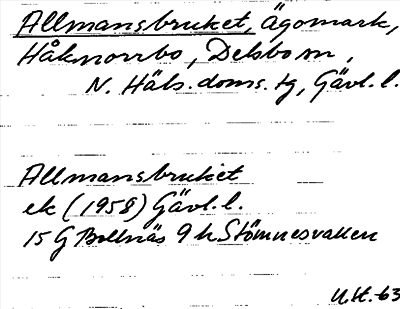 Allmansbruket, Ägomark,
Håknorrbo, Delsbo sn,
N. Häls. doms. tg, Gävl. l.
Allmansbruket
ek (1958) Gävl. l.
15 G Bollnäs 9 h Stömnesvallen
U.H.-63